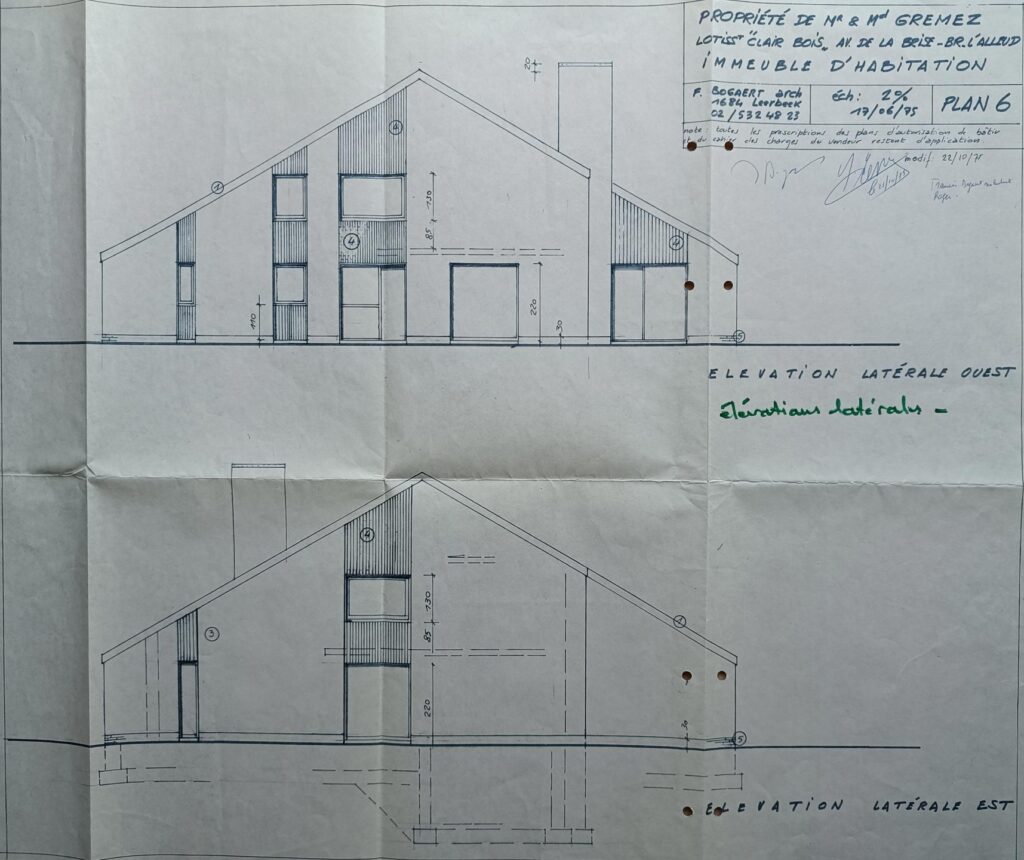 PROPRIÉTÉ DE Mr & Md GREMEZ
LOTISSt "CLAIR BOIS" AV. DE LA BRISE - BR. L'ALLEUD
IMMEUBLE D'HABITATION
F. BOGAERT arch
1684 Leerbeek
02 / 532 48 23
éch: 2%
17/06/75
PLAN 6
note: toutes les prescriptions des plans d'autorisation de bâtir
et du cahier des charges du vendeur restent d'application.
modif. 22/10/75
20
4
1
130
4
85
4
110
220
30
5
ELEVATION LATÉRALE OUEST
élévations latérales -
4
130
3
85
1
220
30
5
ELEVATION LATÉRALE EST